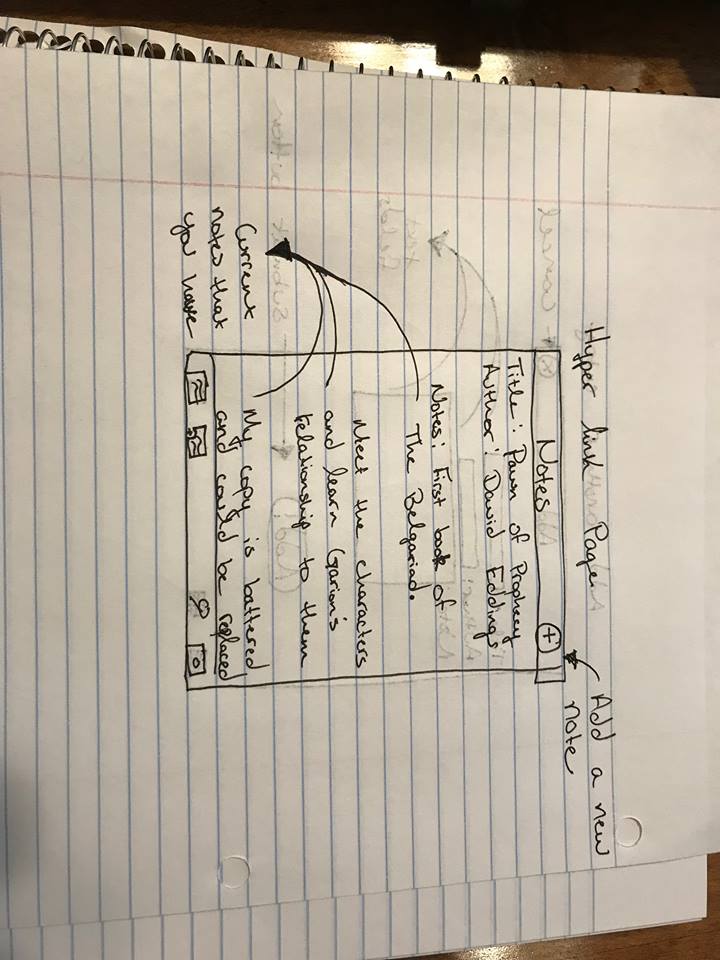 Hyper link Page
Add a new
note
Notes +
Title: Pawn of Prophecy
Author: David Eddings
Notes: First book of
The Belgariad.
Meet the characters
and learn Garion's
relationship to them
My copy is battered,
and could be replaced
Current
notes that
you have